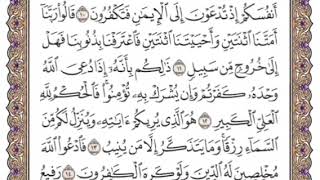 أَنفُسَكُمْ إِذْ تُدْعَوْنَ إِلَى ٱلْإِيمَٰنِ فَتَكْفُرُونَ ١٠ قَالُوا۟ رَبَّنَآ
أَمَتَّنَا ٱثْنَتَيْنِ وَأَحْيَيْتَنَا ٱثْنَتَيْنِ فَٱعْتَرَفْنَا بِذُنُوبِنَا فَهَلْ
إِلَىٰ خُرُوجٍ مِّن سَبِيلٍ ١١ ذَٰلِكُم بِأَنَّهُۥٓ إِذَا دُعِىَ ٱللَّهُ
وَحْدَهُۥ كَفَرْتُمْ وَإِن يُشْرَكْ بِهِۦ تُؤْمِنُوا۟ فَٱلْحُكْمُ لِلَّهِ
ٱلْعَلِىِّ ٱلْكَبِيرِ ١٢ هُوَ ٱلَّذِى يُرِيكُمْ ءَايَٰتِهِۦ وَيُنَزِّلُ لَكُم مِّنَ
ٱلسَّمَآءِ رِزْقًا وَمَا يَتَذَكَّرُ إِلَّا مَن يُنِيبُ ١٣ فَٱدْعُوا۟ ٱللَّهَ
مُخْلِصِينَ لَهُ ٱلدِّينَ وَلَوْ كَرِهَ ٱلْكَٰفِرُونَ ١٤ رَفِيعُ